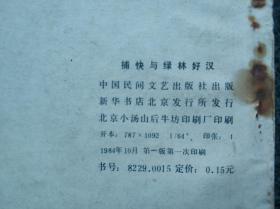 捕快与绿林好汉
中国民间文艺出版社出版
新华书店北京发行所发行
北京小汤山后牛坊印刷厂印刷
开本：787×1092 1/64 印张：1
1984年10月 第一版第一次印刷
书号：8229.0015 定价：0.15元